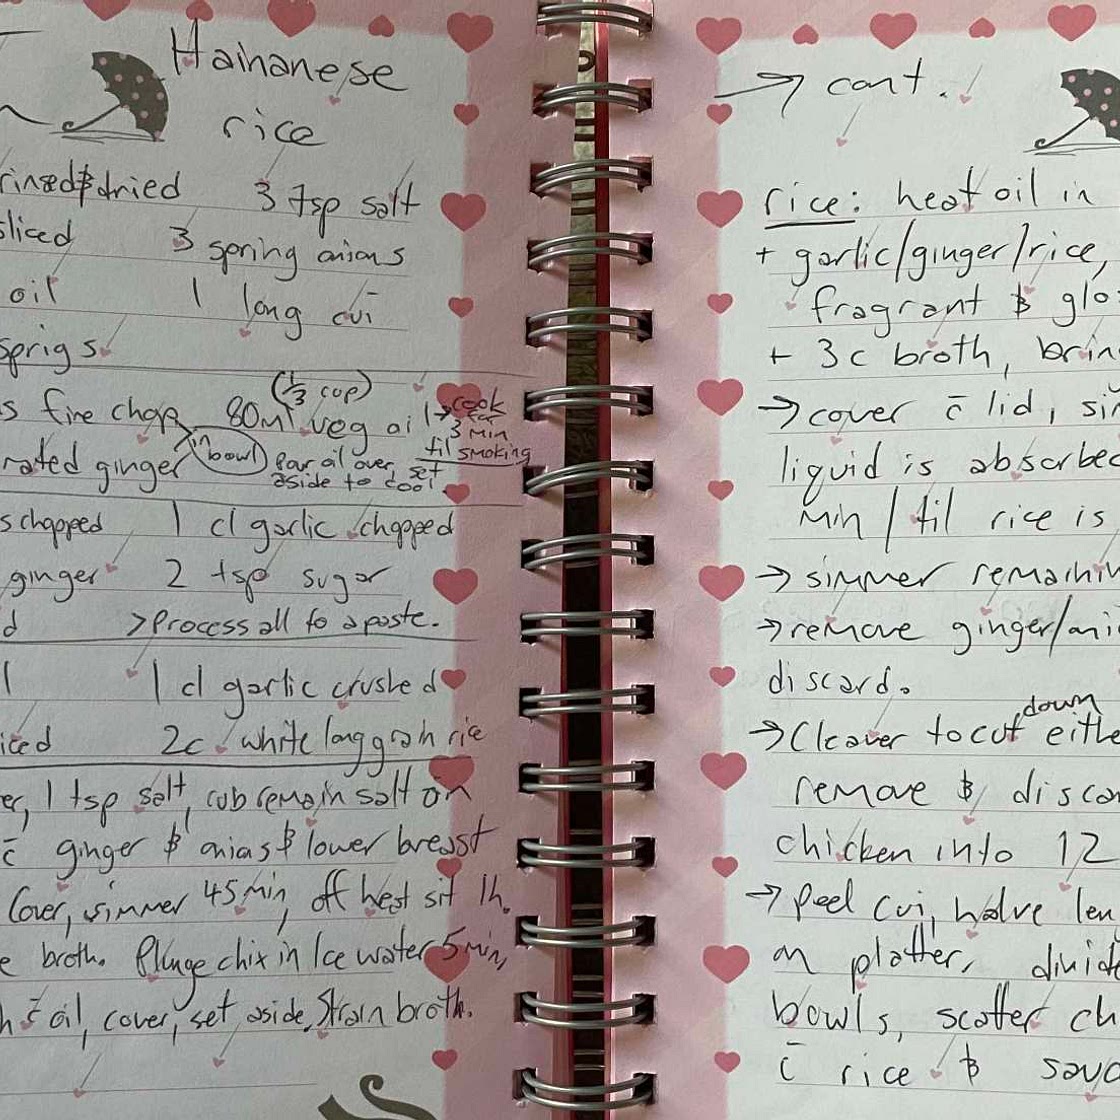 Hainanese
rice
rinsed & dried 3 tsp salt
sliced 3 spring onions
oil 1 long cui
sprigs
(1/3 cup)
s fine chop 80ml veg oil → cook
for
3 min
til smoking
rated ginger in bowl pour oil over, set
aside to cool.
s chopped 1 cl garlic chopped
ginger 2 tsp sugar
d >Process all to a paste.
l 1 cl garlic crushed
iced 2c white long grain rice
er, 1 tsp salt, rub remain salt on
c̄ ginger & onions & lower breast
Cover, simmer 45 min, off heat sit 1h.
e broth. Plunge chix in Ice water 5 min,
h c̄ oil, cover, set aside. Strain broth.
→ cont.
rice: heat oil in
+ garlic/ginger/rice,
fragrant & glo
+ 3c broth, brin
→ cover c̄ lid, si
liquid is absorbe
min / til rice is
→ simmer remainin
→ remove ginger/oni
discard.
→ Cleaver to cut down eithe
remove & disca
chicken into 12
→ peel cui, halve len
on platter, divide
bowls, scatter ch
c̄ rice & sauc